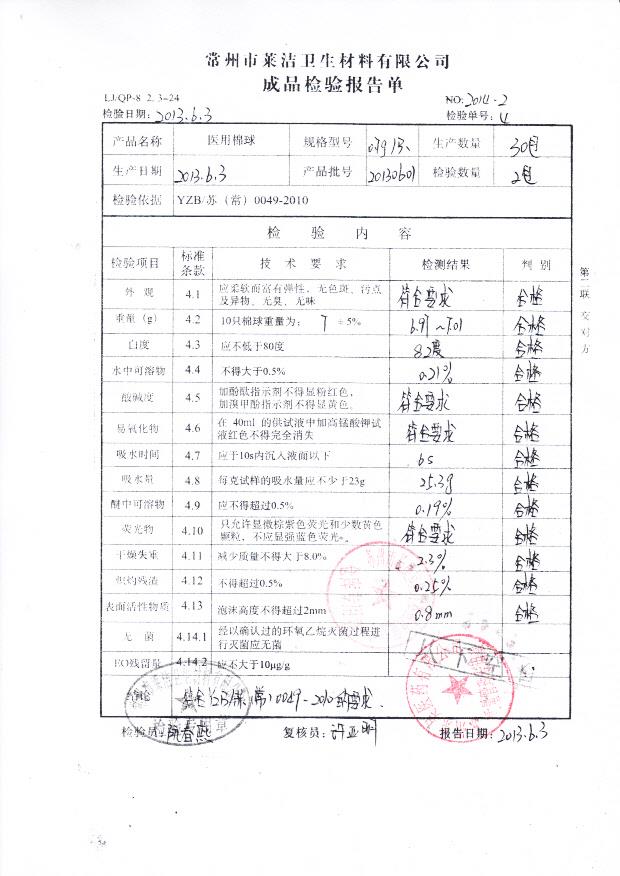 常州市莱洁卫生材料有限公司
成品检验报告单
LJ/QP-8 2.3-24 NO: 2014-2
检验日期: 2013.6.3 检验单号: 4
产品名称 医用棉球 规格型号 生产数量 30包
生产日期 2013.6.3 产品批号 20130601 检验数量 2包
检验依据 YZB/苏(常)0049-2010
检 验 内 容
检验项目 标准条款 技 术 要 求 检测结果 判 别
外 观 4.1 应柔软而富有弹性,无色斑、污点及异物,无臭、无味 符合要求 合格
重量(g) 4.2 10只棉球重量为: 7 ±5% 6.97~7.01 合格
白度 4.3 应不低于80度 82度 合格
水中可溶物 4.4 不得大于0.5% 0.21% 合格
酸碱度 4.5 加酚酞指示剂不得显粉红色,加溴甲酚指示剂不得显黄色。 符合要求 合格
易氧化物 4.6 在 40ml 的供试液中加高锰酸钾试液红色不得完全消失 符合要求 合格
吸水时间 4.7 应于10s内沉入液面以下 6s 合格
吸水量 4.8 每克试样的吸水量应不少于23g 25.3g 合格
醚中可溶物 4.9 应不得超过0.5% 0.19% 合格
荧光物 4.10 只允许显微棕紫色荧光和少数黄色颗粒,不应显强蓝色荧光。 符合要求 合格
干燥失重 4.11 减少质量不得大于8.0% 2.3% 合格
炽灼残渣 4.12 不得超过0.5% 0.25% 合格
表面活性物质 4.13 泡沫高度不得超过2mm 0.8mm 合格
无 菌 4.14.1 经以确认过的环氧乙烷灭菌过程进行灭菌应无菌
EO残留量 4.14.2 应不大于10μg/g
结论 符合YZB/苏(常)0049-2010的要求.
检验员: 复核员: 许亚明 报告日期: 2013.6.3
第二联 交对方